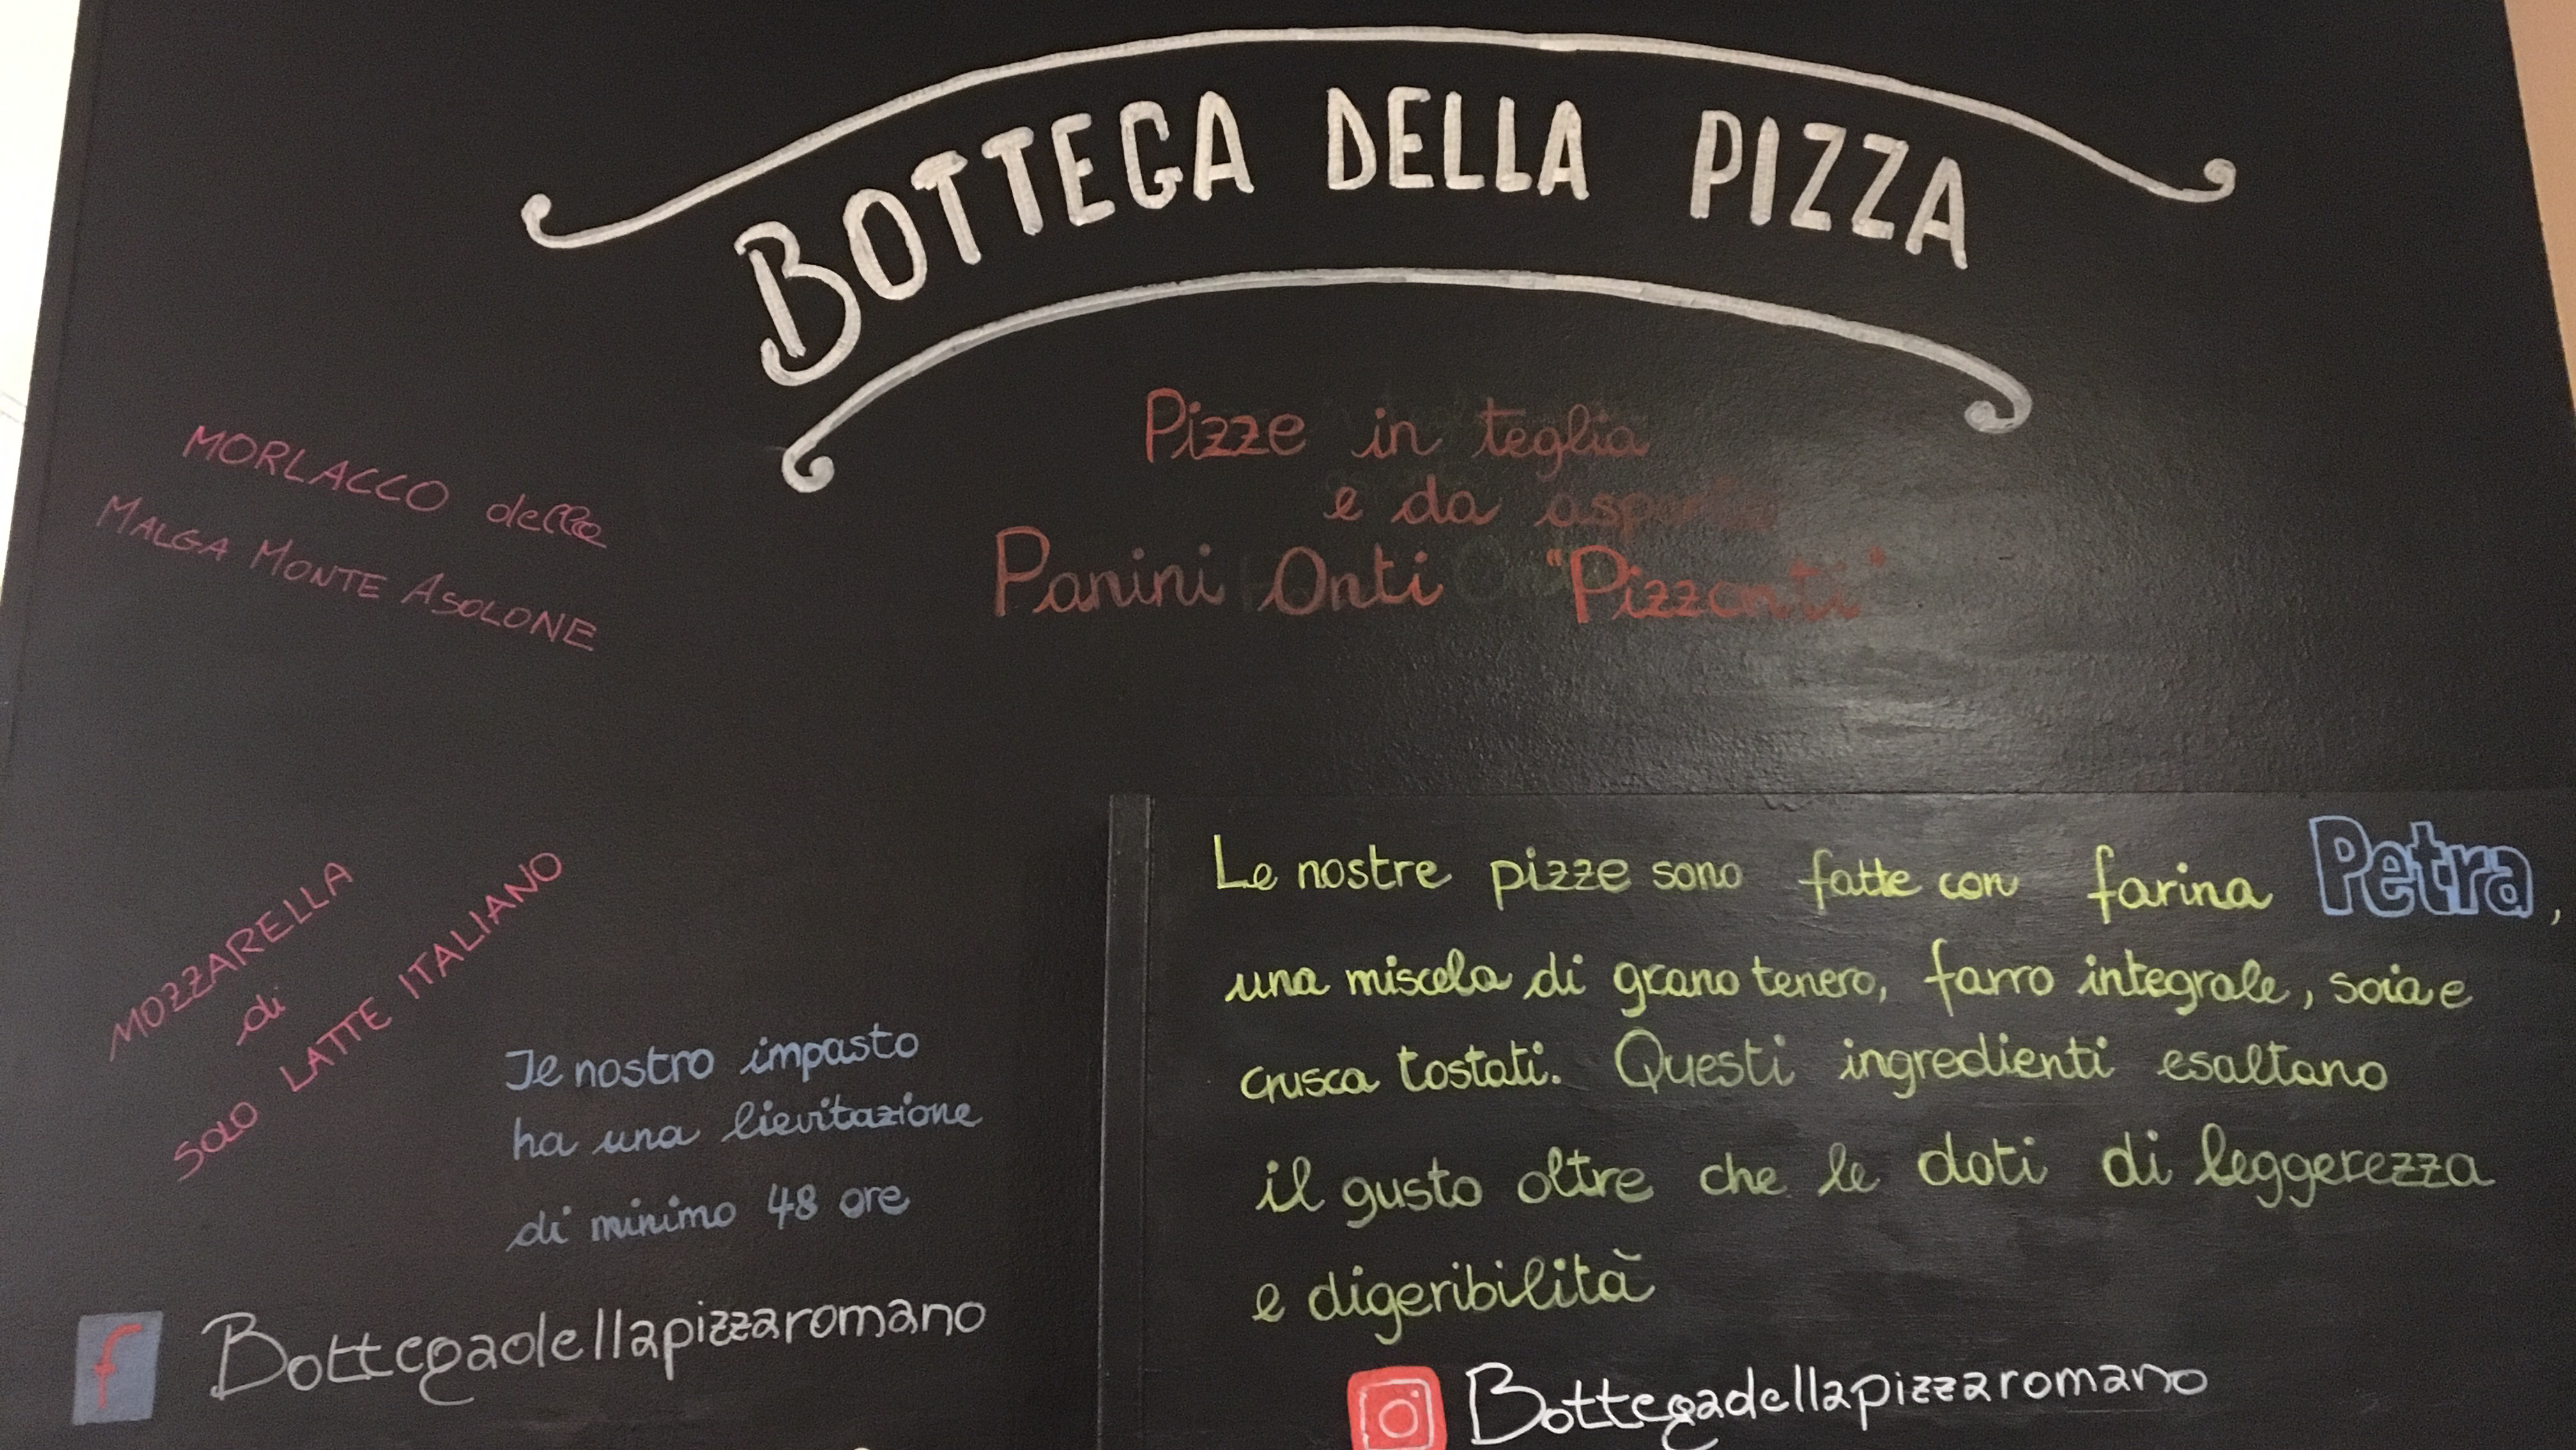 BOTTEGA DELLA PIZZA
Pizze in teglia
e da asporto
Panini Onti "Pizzonti"
MORLACCO della
MALGA MONTE ASOLONE
MOZZARELLA
di
SOLO LATTE ITALIANO
Il nostro impasto
ha una lievitazione
di minimo 48 ore
f Bottegadellapizzaromano
Le nostre pizze sono fatte con farina Petra,
una miscela di grano tenero, farro integrale, soia e
crusca tostati. Questi ingredienti esaltano
il gusto oltre che le doti di leggerezza
e digeribilità
Bottegadellapizzaromano